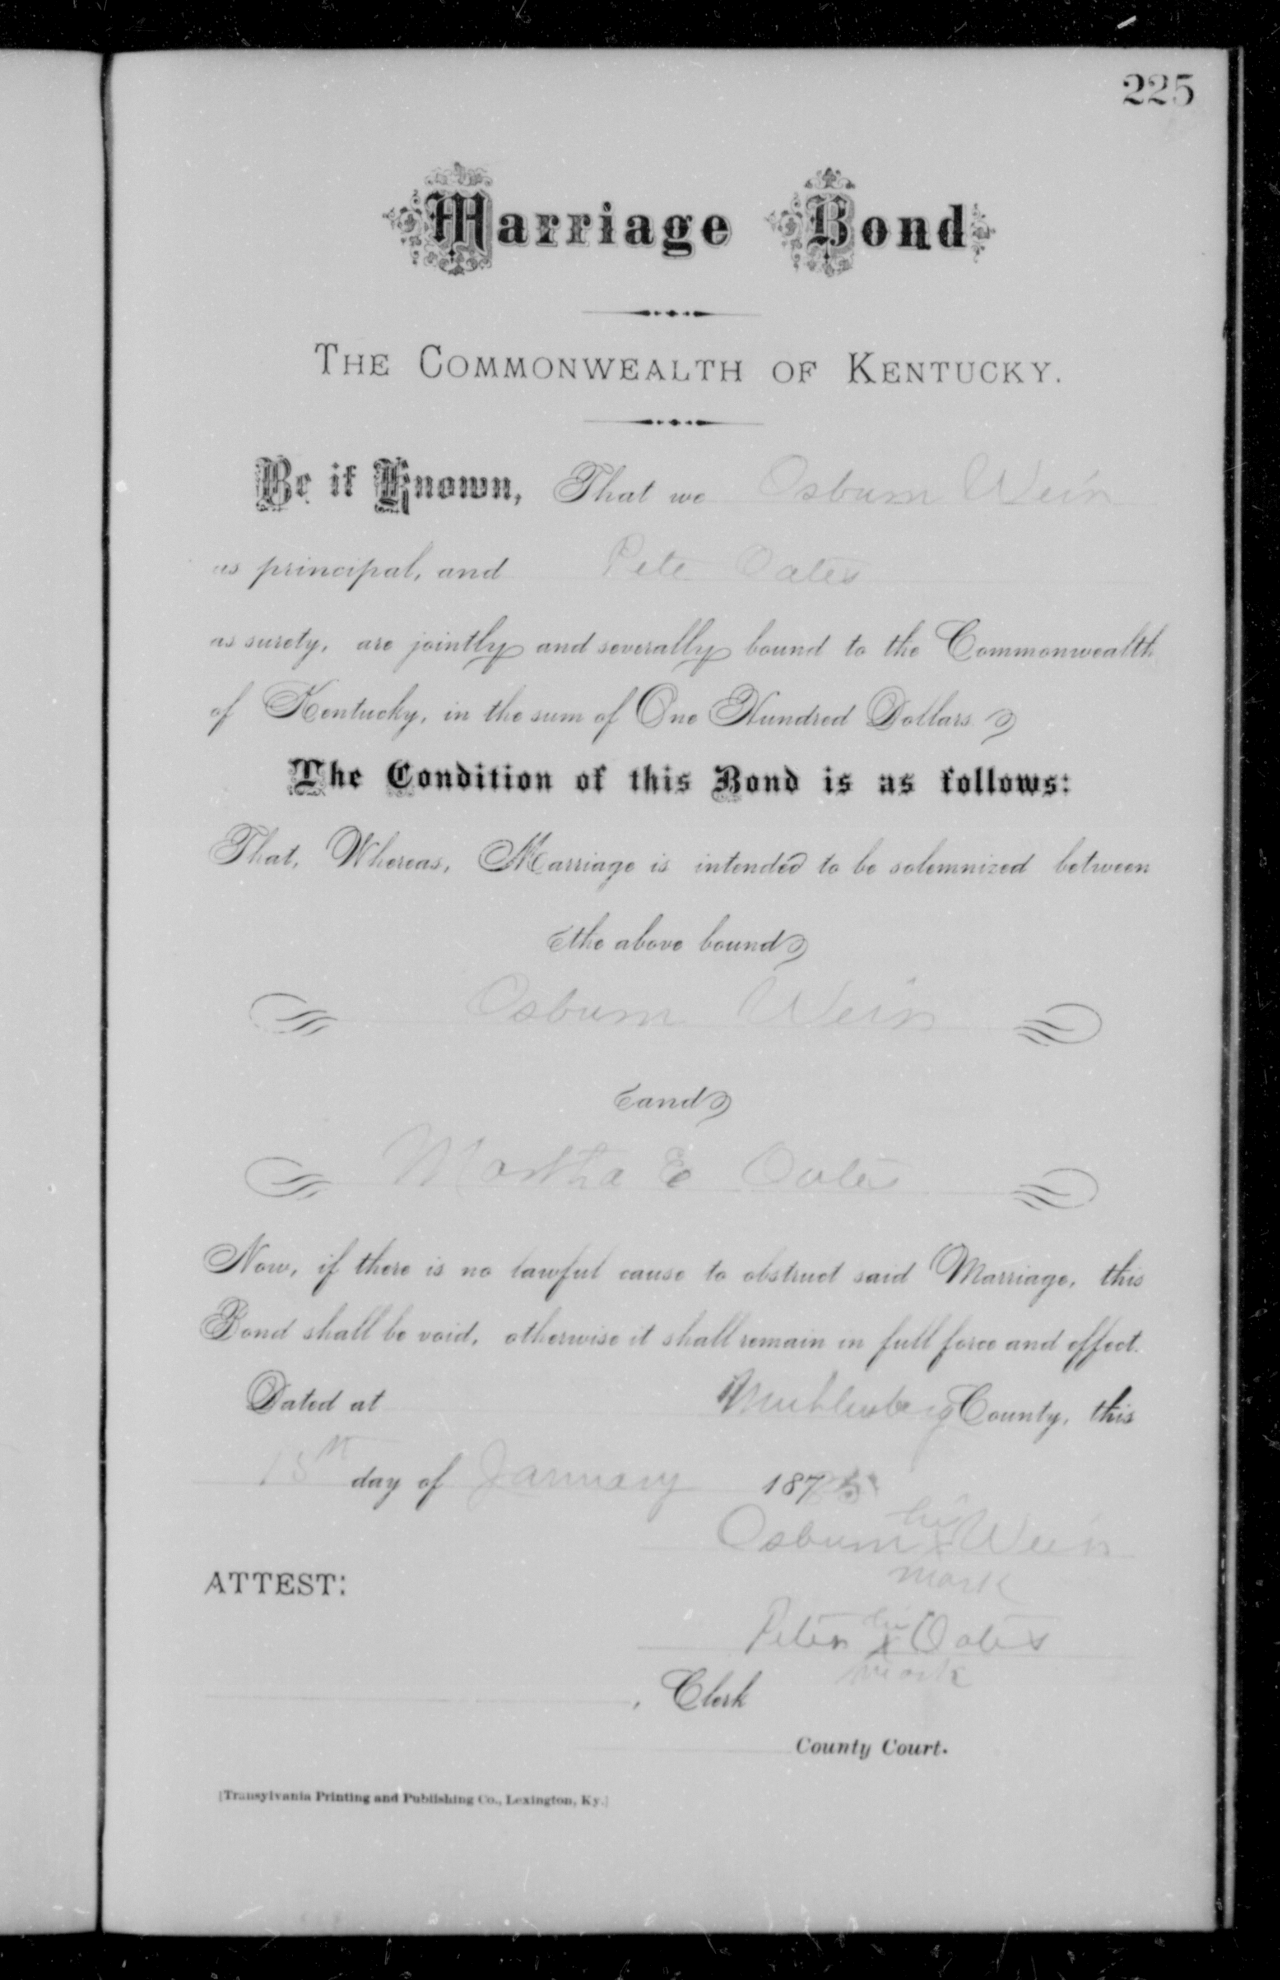 225
Marriage Bond
THE COMMONWEALTH OF KENTUCKY.
Be it Known, That we Osburn Weir
as principal, and Pete Oates
as surety, are jointly and severally bound to the Commonwealth
of Kentucky, in the sum of One Hundred Dollars.
The Condition of this Bond is as follows:
That, Whereas, Marriage is intended to be solemnized between
the above bound
Osburn Weir
and
Martha E Oates
Now, if there is no lawful cause to obstruct said Marriage, this
Bond shall be void, otherwise it shall remain in full force and effect.
Dated at Muhlenberg County, this
15th day of January 187
his
Osburn X Weir
mark
ATTEST:
his
Peter X Oates
mark
, Clerk
County Court.
[Transylvania Printing and Publishing Co., Lexington, Ky.]